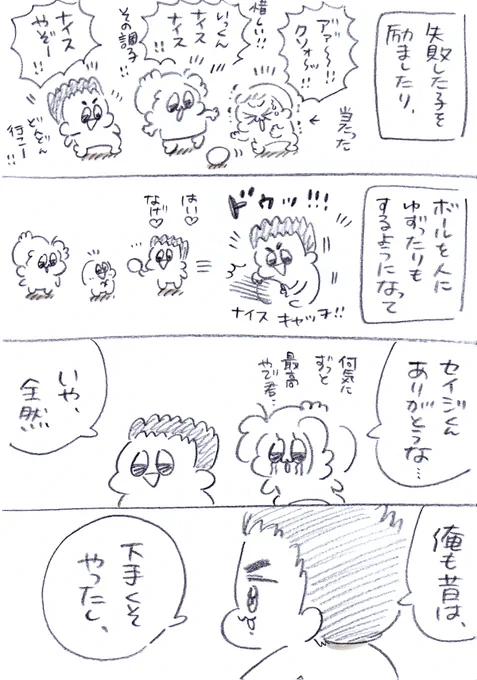 失敗した子を
励ましたり、
アァ〜!!
クソォ〜ッ!!
当たった
惜しい!!
いっくん
ナイス
ナイス!!
その調子!!
ナイス
やぞー!!
どんどん
行こー!!
ボールを人に
ゆずったりも
するようになって
ドゥッ!!!
ナイスキャッチ!!
はい♡
なげ♡
セイジくん
ありがとうな…
何気に
ずっと
最高
やで君…
いや、
全然
俺も昔は、
下手くそ
やったし、